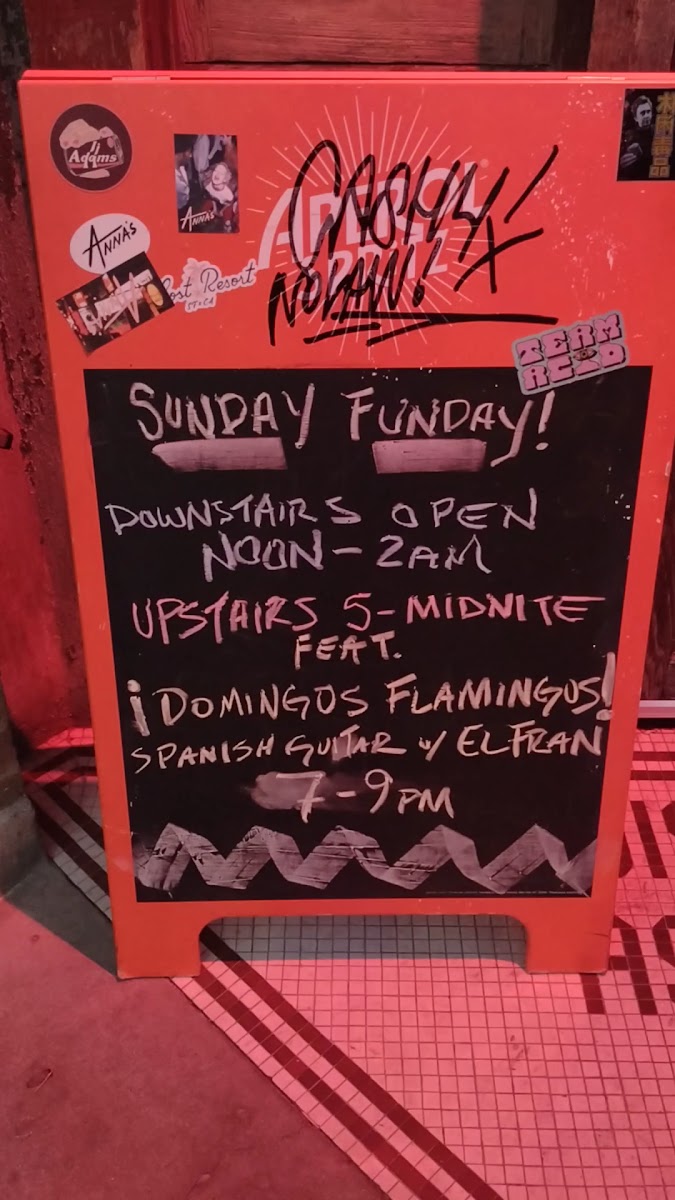 Adams
ANNA'S
APEROL
SPRITZ
ANNA'S
Lost Resort
TEAM
ACID
SUNDAY FUNDAY!
DOWNSTAIRS OPEN
NOON - 2AM
UPSTAIRS 5 - MIDNITE
FEAT.
¡DOMINGOS FLAMINGOS!
SPANISH GUITAR w/ EL FRAN
7 - 9PM